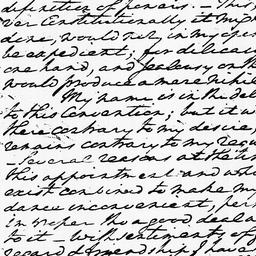 definition of powers. — This,
ver Constitutionally it might
done, would not, in my opin
be expedient; for delicacy
one hand, and jealousy on th
would produce a mere nihil
My name is in the del
to this Convention; but it w
there contrary to my desire,
remains contrary to my requ
— Several reasons at the tim
this appointment and whi
exist combined to make my
dance inconvenient, per
improper tho' a good deal
to it — With sentiments of
regard & friendship I have